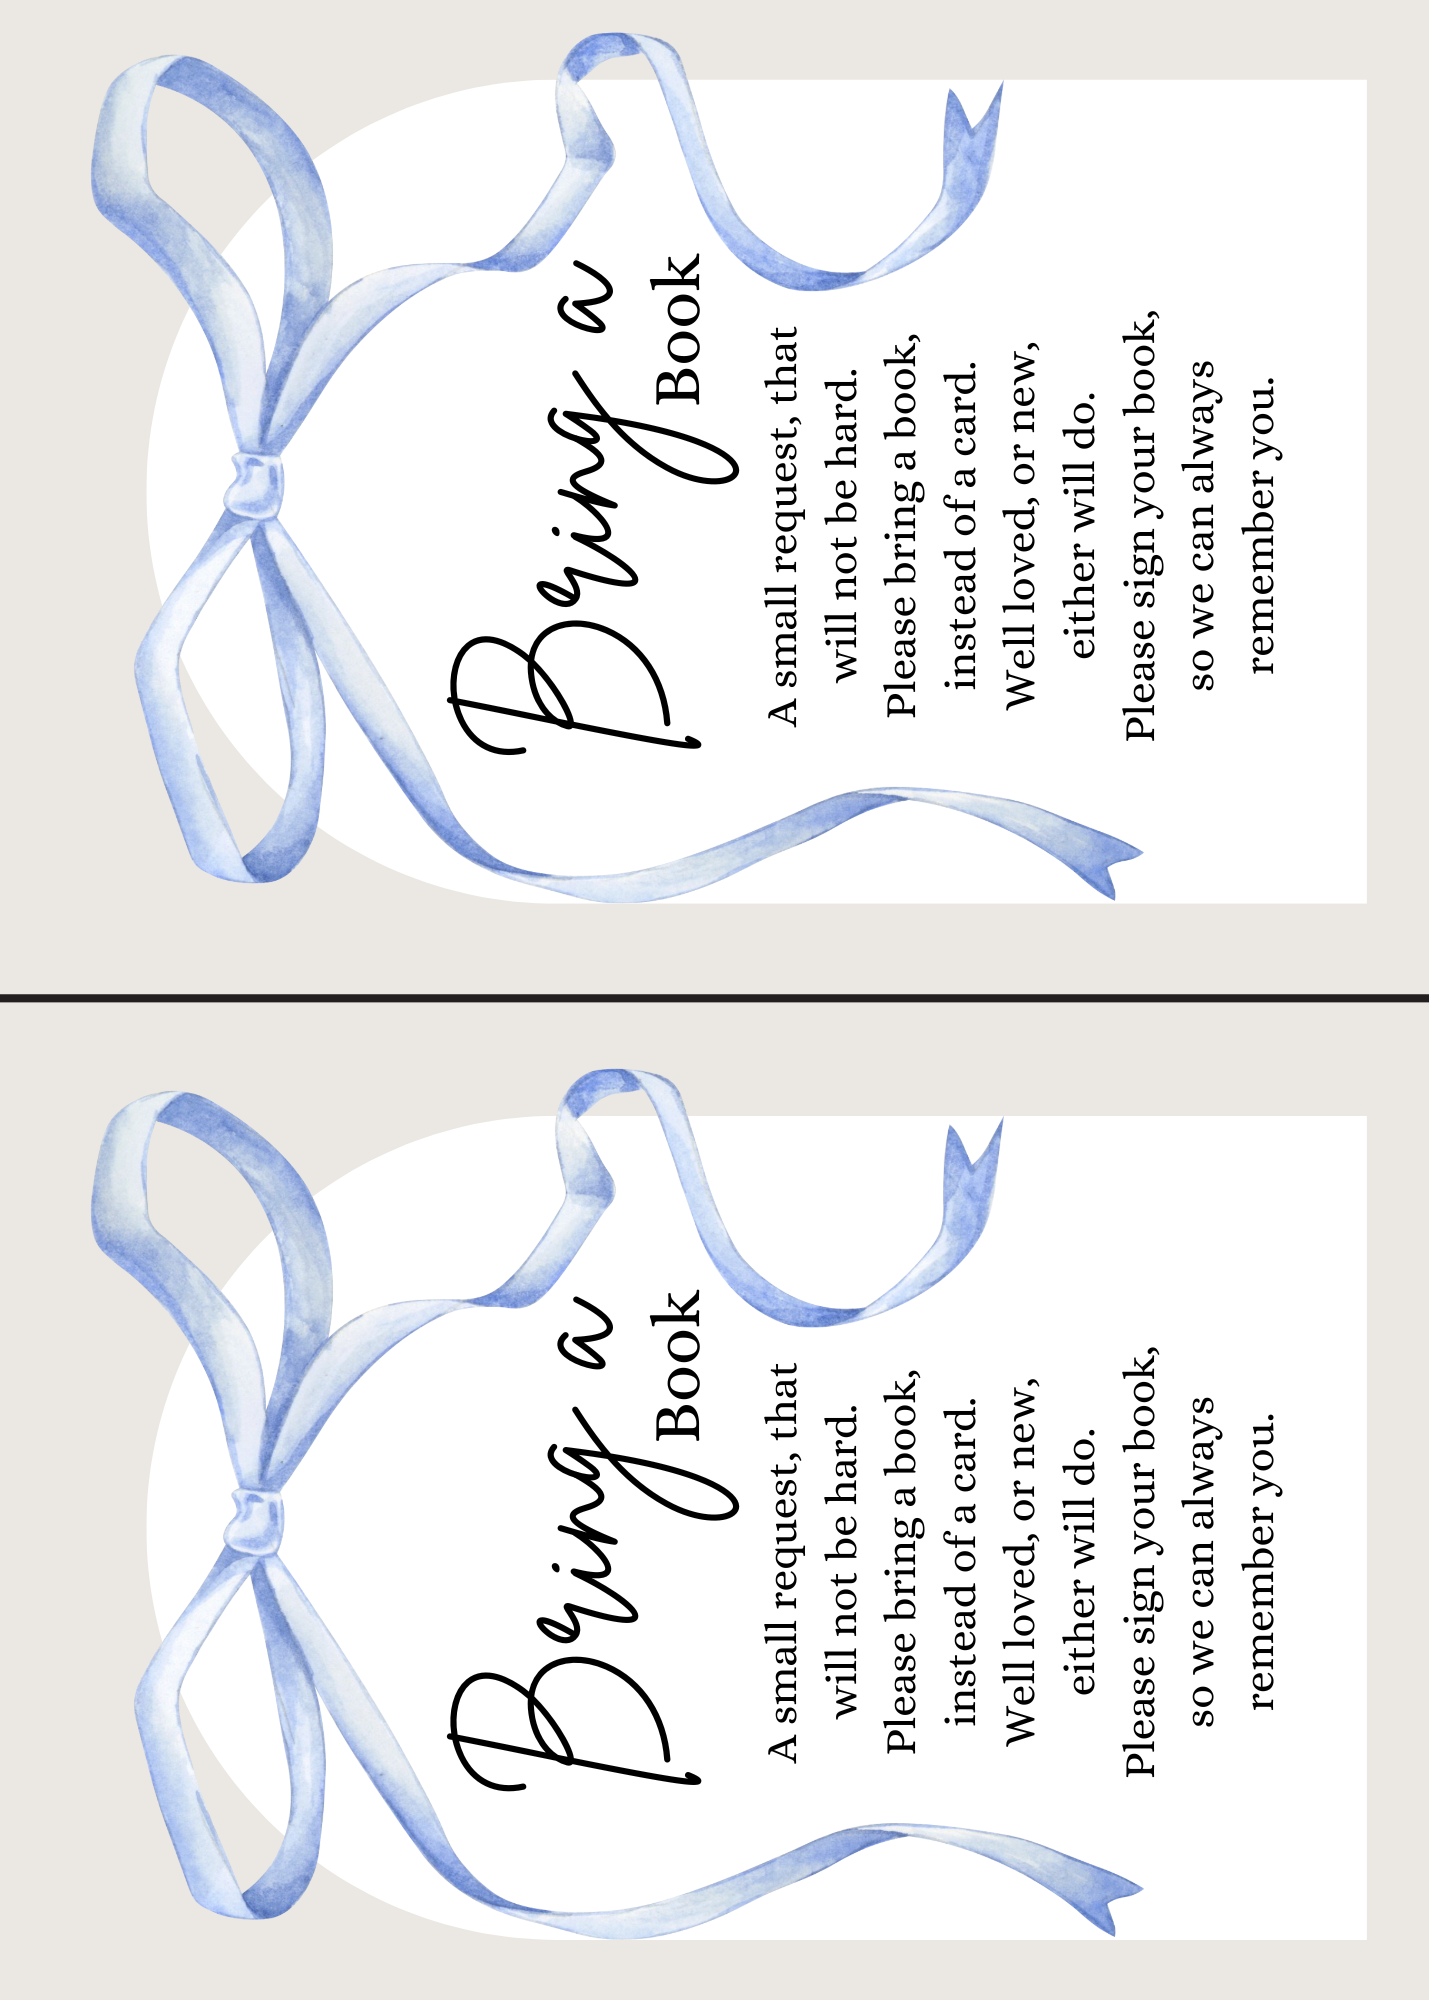 Bring a
Book
A small request, that
will not be hard.
Please bring a book,
instead of a card.
Well loved, or new,
either will do.
Please sign your book,
so we can always
remember you.
Bring a
Book
A small request, that
will not be hard.
Please bring a book,
instead of a card.
Well loved, or new,
either will do.
Please sign your book,
so we can always
remember you.